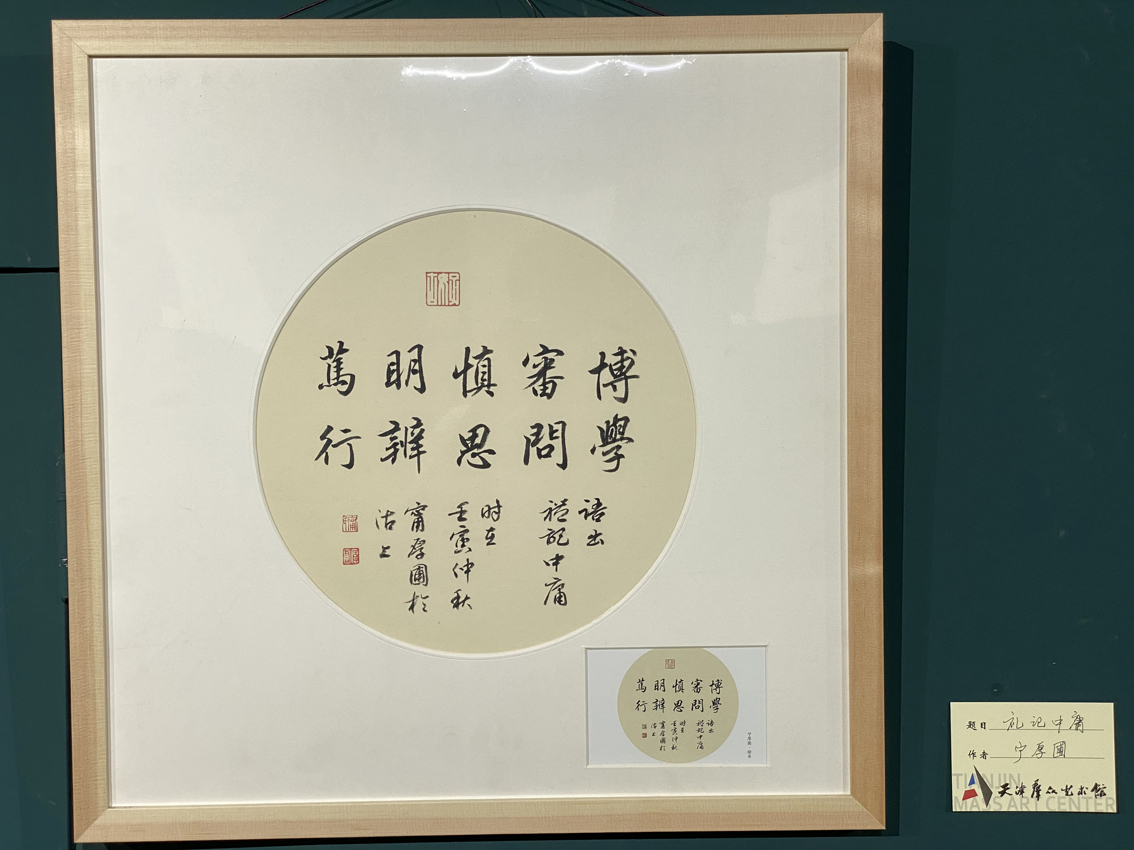 博學
審問
慎思
明辨
篤行
语出
禮記中庸
时在
壬寅仲秋
甯厚圃於
沽上
博學
審問
慎思
明辨
篤行
语出
禮記中庸
时在
壬寅仲秋
甯厚圃於
沽上
题目 礼记中庸
作者 宁厚圃
天津群众艺术馆
TIANJIN
MASS ART CENTER